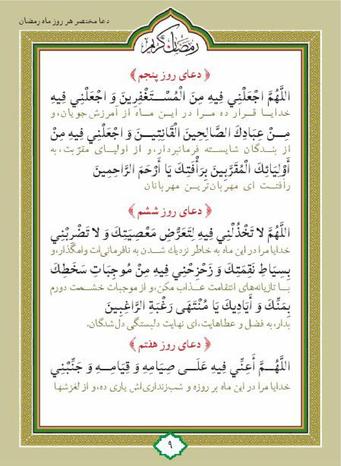 دعا مختصر هر روز ماه رمضان
رمضان کریم
﴿ دعای روز پنجم ﴾
اَللّهُمَّ اجْعَلْنِي فِيهِ مِنَ الْمُسْتَغْفِرِينَ وَ اجْعَلْنِي فِيهِ
خدایا قرار ده مرا در این ماه از آمرزش‌جویان، و
مِنْ عِبَادِكَ الصَّالِحِينَ الْقَانِتِينَ وَ اجْعَلْنِي فِيهِ مِنْ
از بندگان شایسته فرمانبردار، و از اولیای مقرّبت، به
أَوْلِيَائِكَ الْمُقَرَّبِينَ بِرَأْفَتِكَ يَا أَرْحَمَ الرَّاحِمِينَ
رأفتت ای مهربان‌ترین مهربانان
﴿ دعای روز ششم ﴾
اَللّهُمَّ لَا تَخْذُلْنِي فِيهِ لِتَعَرُّضِ مَعْصِيَتِكَ وَ لَا تَضْرِبْنِي
خدایا مرا در این ماه به خاطر نزدیک شدن به نافرمانی‌ات وامگذار، و
بِسِيَاطِ نَقِمَتِكَ وَ زَحْزِحْنِي فِيهِ مِنْ مُوجِبَاتِ سَخَطِكَ
با تازیانه‌های انتقامت عذاب مکن، و از موجبات خشمت دورم
بِمَنِّكَ وَ أَيَادِيكَ يَا مُنْتَهَى رَغْبَةِ الرَّاغِبِينَ
بدار، به فضل و عطاهایت، ای نهایت دلبستگی دل‌شدگان.
﴿ دعای روز هفتم ﴾
اَللّهُمَّ أَعِنِّي فِيهِ عَلَى صِيَامِهِ وَ قِيَامِهِ وَ جَنِّبْنِي
خدایا مرا در این ماه بر روزه و شب‌زنداری‌اش یاری ده، و از لغزشها
۹